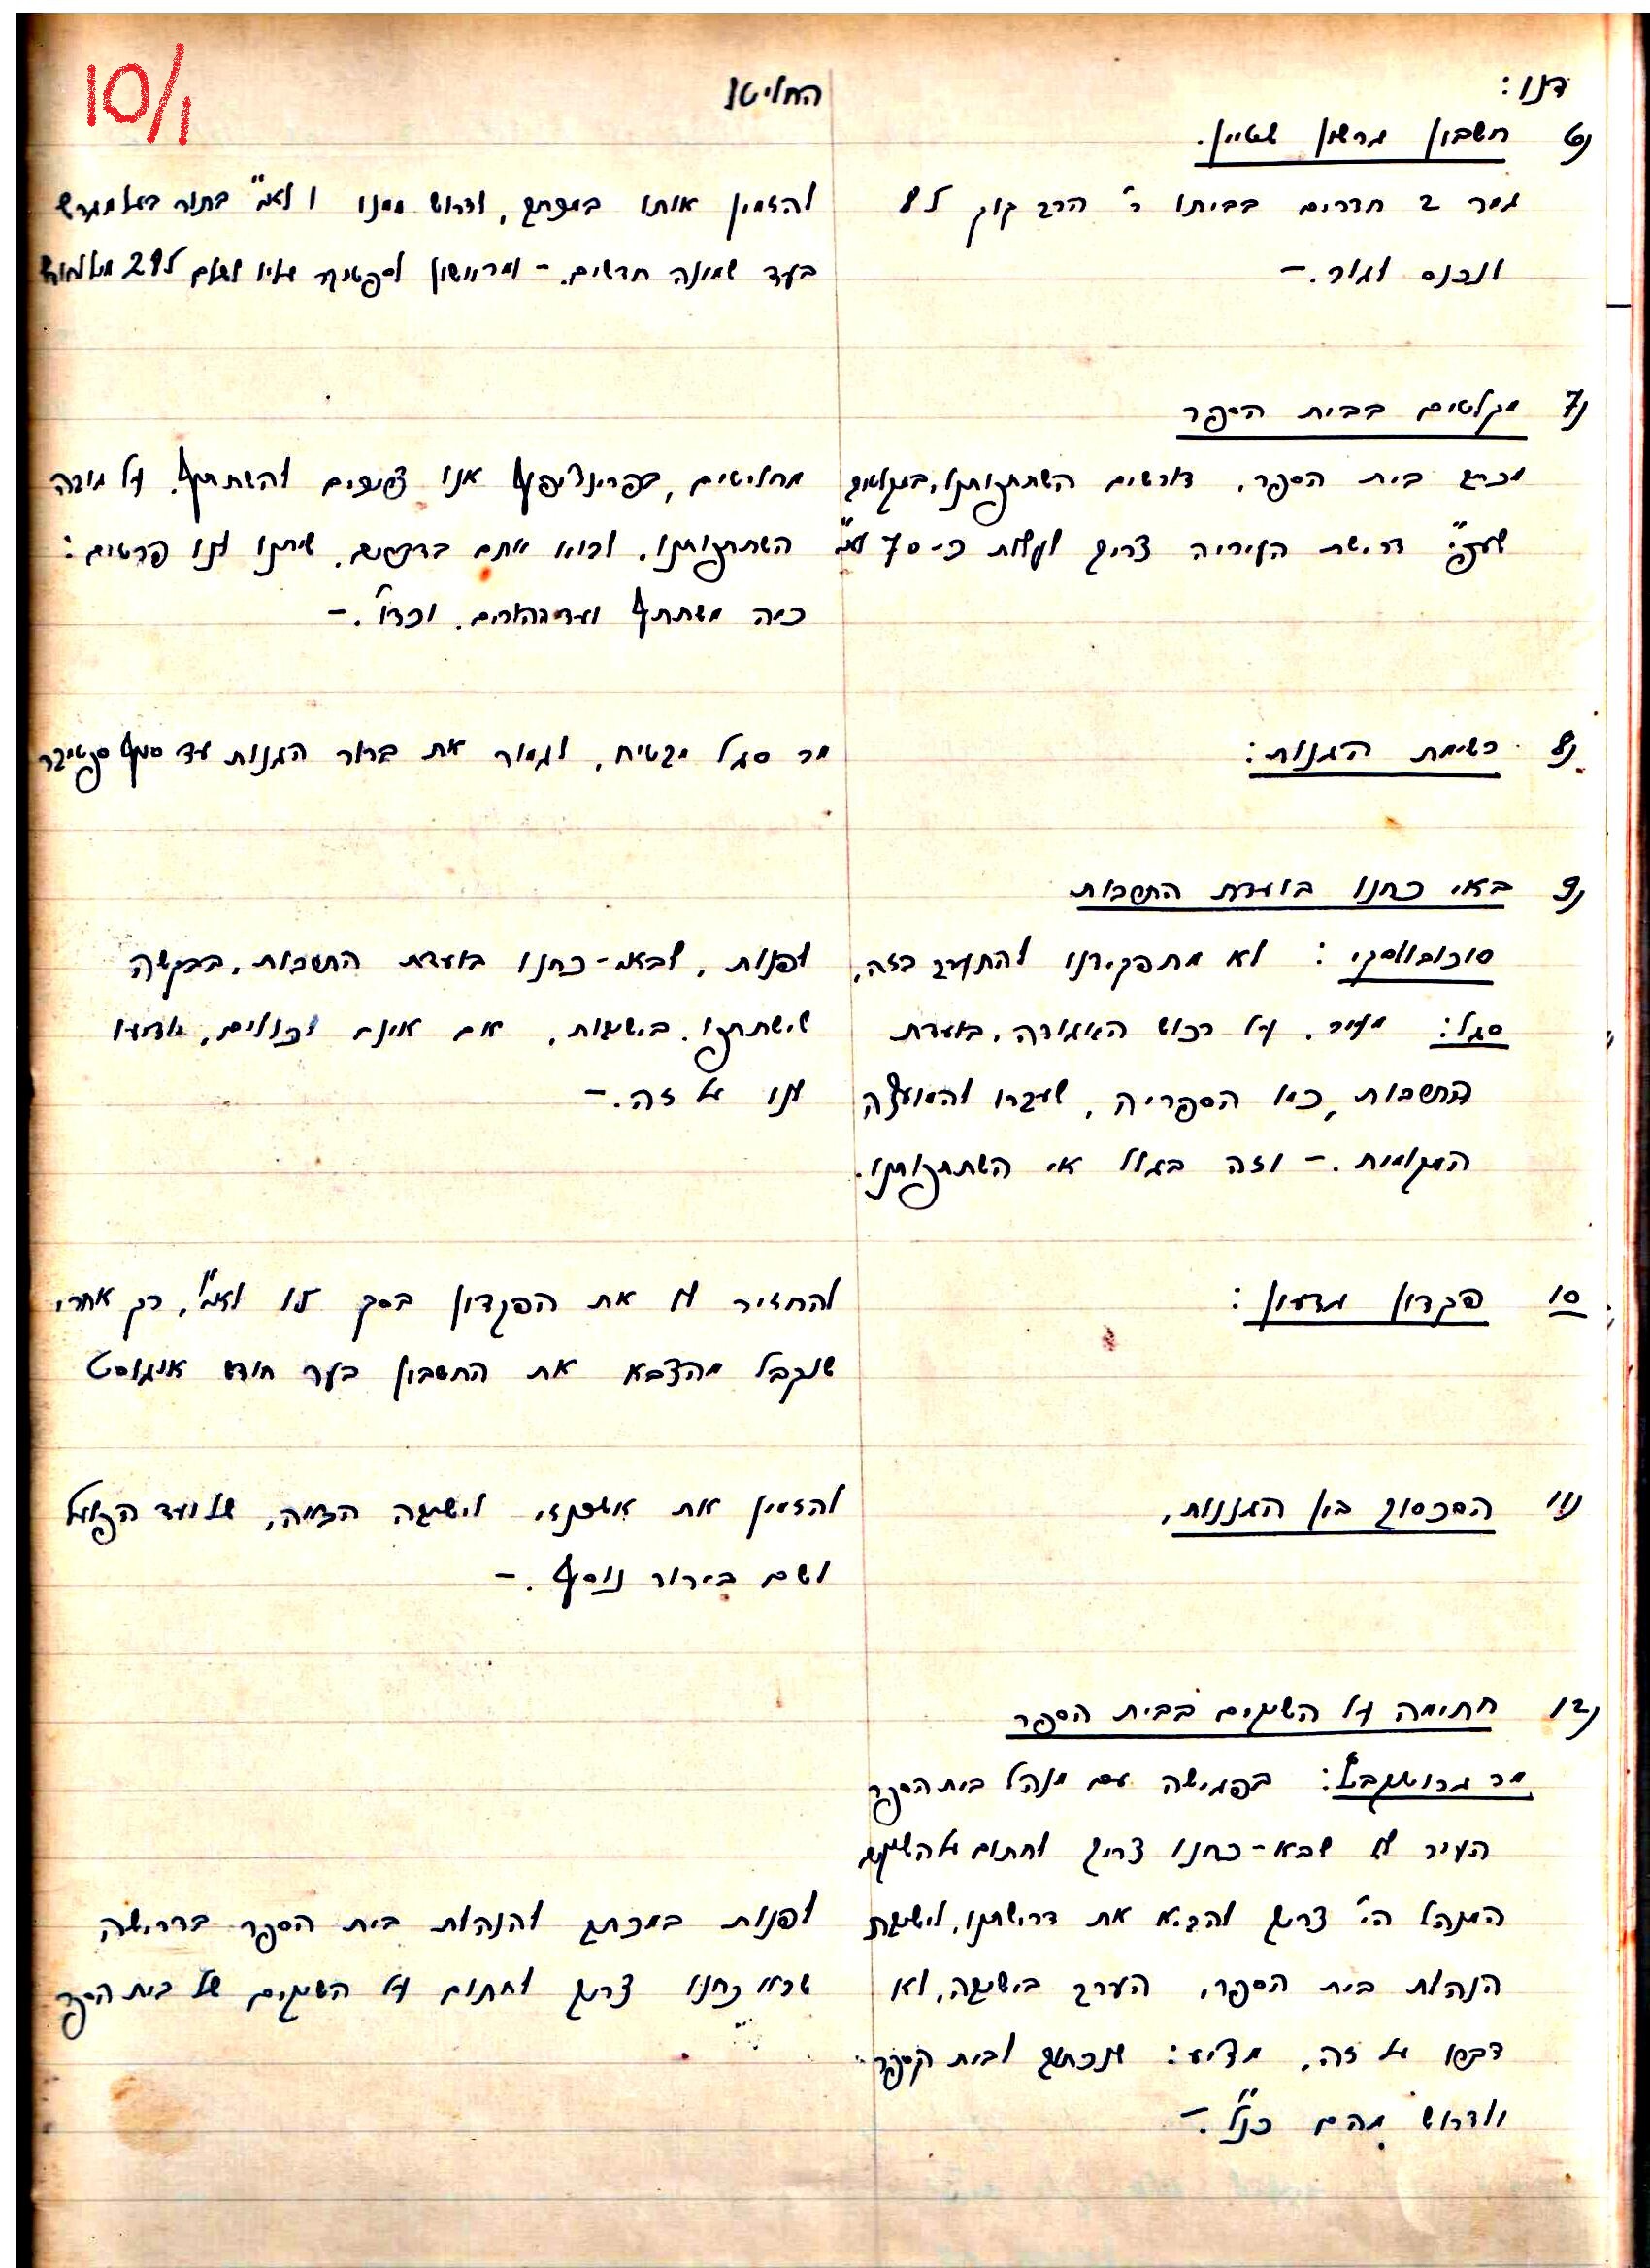 10/1
דנו:
החליטו
6) חשבון גרשון שטיין.
גמר 2 חדרים בביתו ר' הרב קוק 8
ונכנס לגור.–
להזמין אותו במכתב, ולדרוש ממנו 1 לא"י בתור
בעד שמונה חדשים.– ומראשון לספטמבר עליו לשלם
7) מקלטים בבית הספר
מכתב בית הספר. דורשים השתתפותנו, במקלטים
שעפ"י דרישת העיריה צריך לעלות כ- 70 לא"י
מחליטים, בפרינציפ אנו צריכים להשתתף. על גובה
השתתפותנו. לבוא אתם בדברים. שיתנו לנו פרטים:
כמה משתתף ועד ההורים. וכדו'.–
8) רשימת הגנות:
מר סגל מבטיח, לגמור את ברור הגנות עד סוף ספטמבר
9) באי כחנו בועדת התרבות
סוכובולסקי: לא מתפקידנו להתערב בזה,
סגל: מעיר. על רכוש האגודה, בועדת
התרבות, כמו הספריה, שעברו להמועצה
המקומית.– וזה בגלל אי השתתפותנו.
לפנות, לבאי-כחנו בועדת התרבות, בבקשה
שישתתפו. בישיבות, אם אינם יכולים, יודיעו
לנו על זה.–
10 פקדון גדעון:
להחזיר לו את הפקדון בסך לא"י, רק אחרי
שנקבל מהצבא את החשבון בעד חודש אוגוסט
11) הסכסוך בין הגננות,
להזמין את אשכנזי לישיבה הבאה, של ועד הפועל
ושם בירור נוסף.–
12) חתימה על השיקים בבית הספר
מר : בפגישה עם מנהל בית הספר
העיר לו שבא-כחנו צריך לחתום על השיקים
המנהל הי' צריך להביא את דרישתנו, לישיבת
הנהלת בית הספר, הערב בישיבה, לא
דברו על זה, מציע: שנכתוב לבית הספר
ולדרוש מהם כנ"ל.–
לפנות במכתב להנהלת בית הספר בדרישה
שבא כחנו צריך לחתום על השיקים של בית הספר